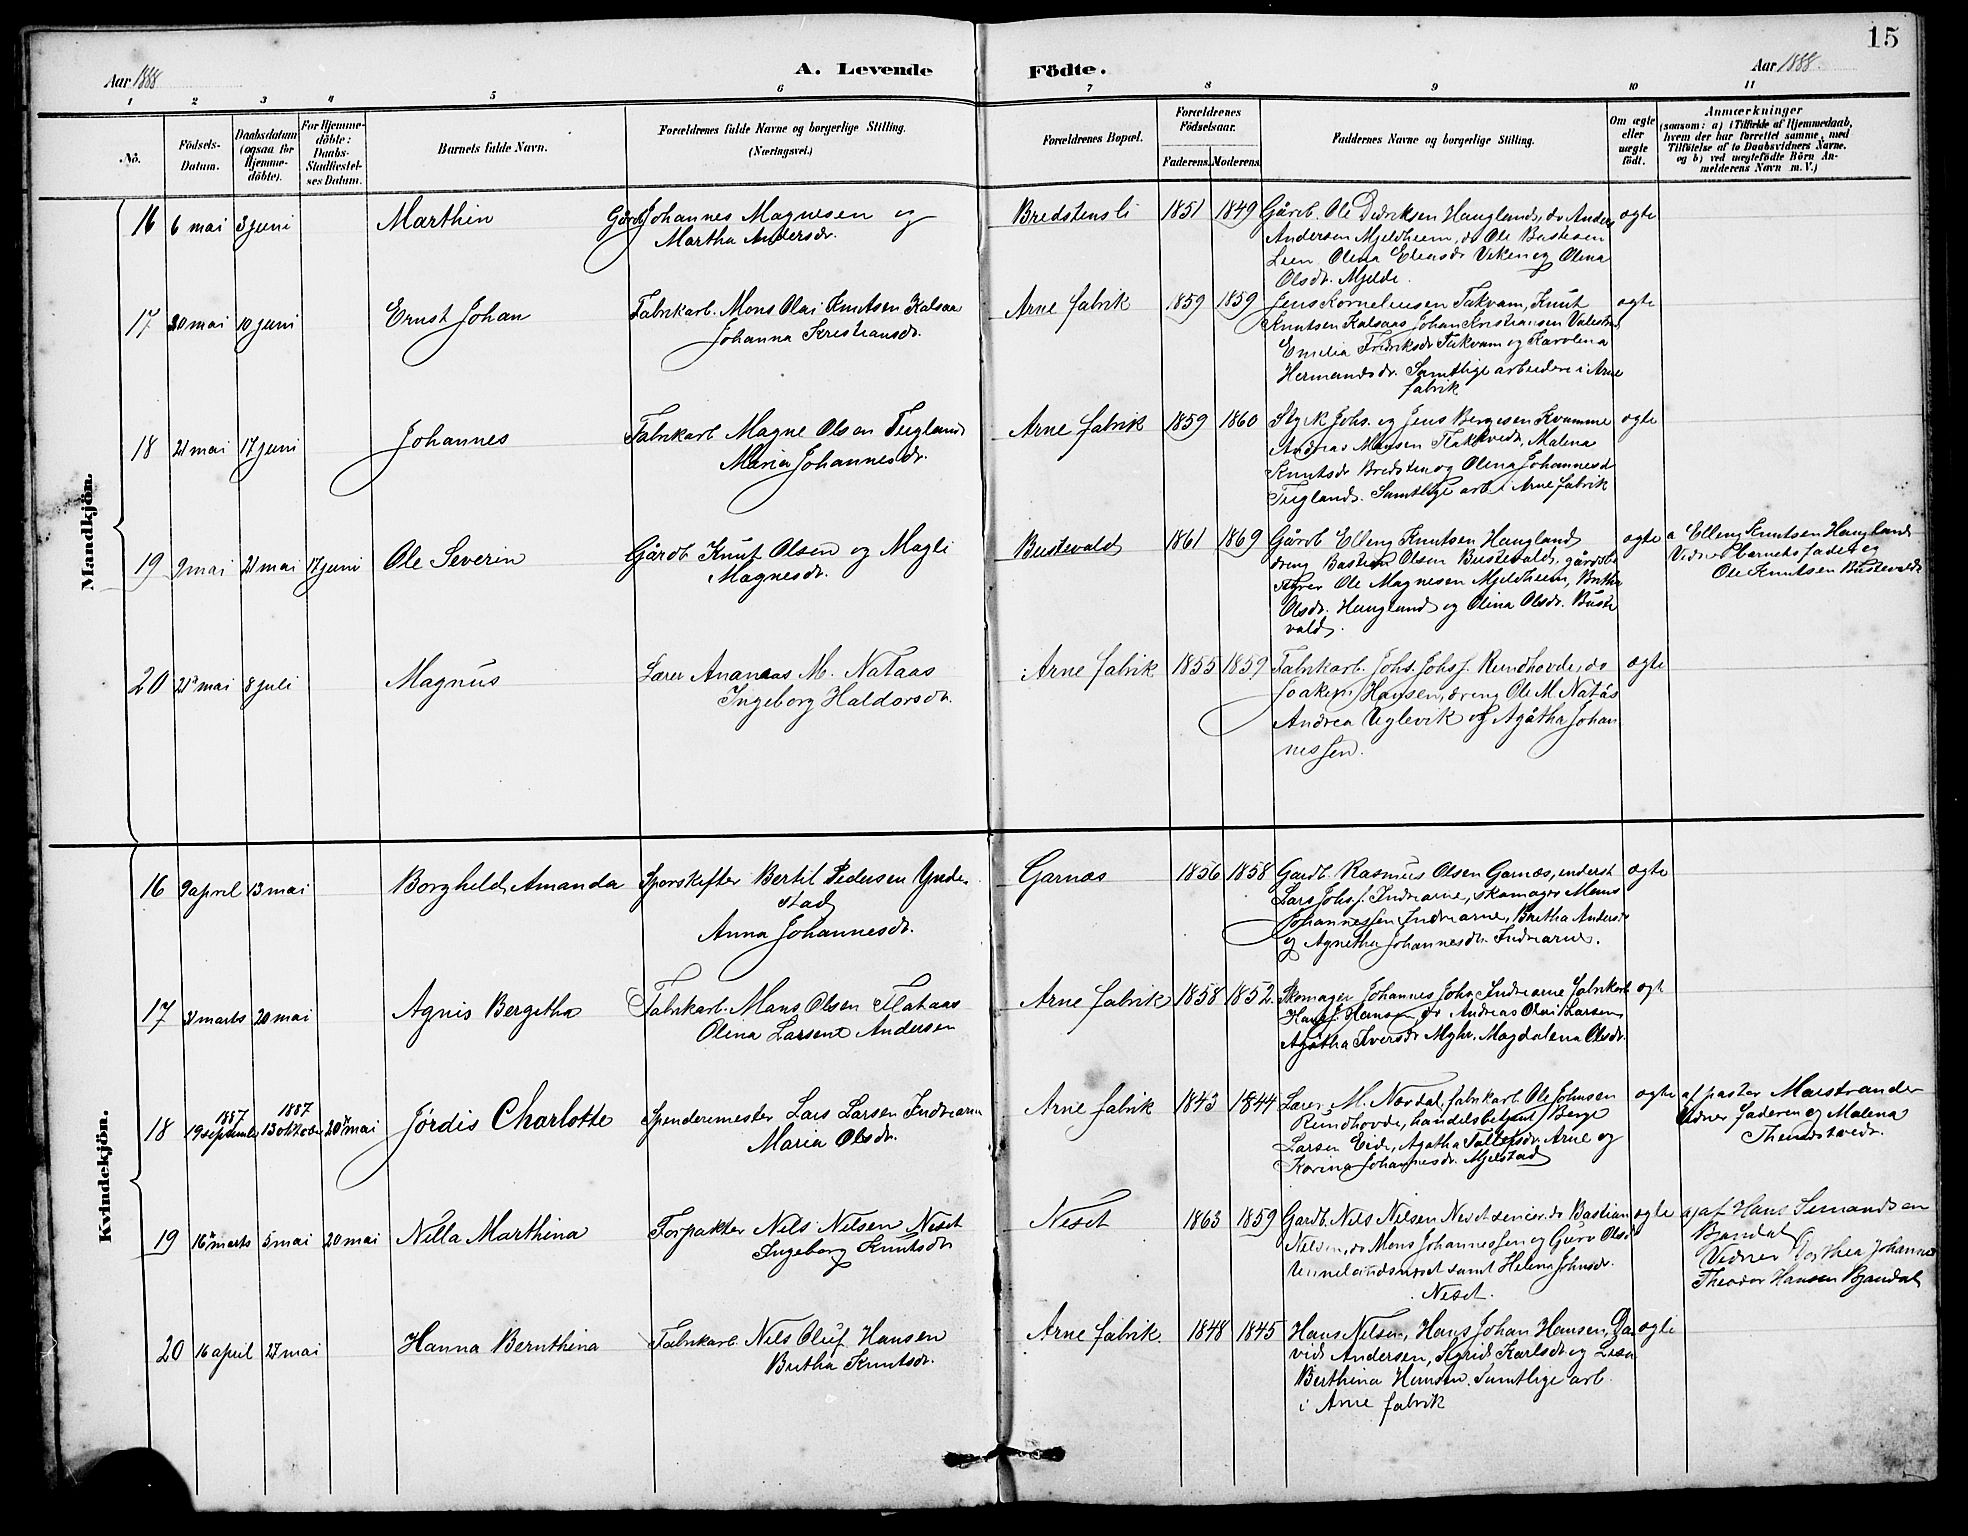 15
Aar 1888
A. Levende Födte.
Aar 1888.
1 2 3 4 5 6 7 8 9 10 11
No.
Födsels-Datum.
Daabsdatum (ogsaa for Hjemme-döbte).
For Hjemme-döbte: Daabs-Stadfæstel-ses Datum.
Barnets fulde Navn.
Forældrenes fulde Navne og borgerlige Stilling.
(Næringsvei.)
Forældrenes Bopæl.
Forældrenes Födselsaar.
Faderens. Moderens.
Faddernes Navne og borgerlige Stilling.
Om ægte eller uægte födt.
Anmærkninger
(saasom: a) i Tilfælde af Hjemmedaab,
hvem der har forrettet samme, med
Tilföielse af to Daabsvidners Navne.
og b) ved uægtefödte Börn An-
melderens Navn m.V.)
Mandkjön.
16 6 mai 3 juni Marthin Gårdb Johannes Magnesen og
Martha Andersdr.
Bredstensli 1851 1849 Gårdb. Ole Didriksen Haugland, do Anders
Andersen Mjeldheim, do Ole Bastesen
Leen Olena Elensdr Viken og Olena
Olsdr. Mjelde.
ægte
17 20 mai 10 juni Ernst Johan Fabrikarb. Mons Olai Knutsen Kalsaa
Johanna Kristiansdr.
Arne fabrik 1859 1859 Jens Kornelius­en Takvam, Knut
Knutsen Kalsaas Johan Kristiansen Valestra
Emilia Fredriksdr Takvam og Karolina
Hermandsdr. Samtlige arbeidere i Arne
fabrik
ægte
18 21 mai 17 juni Johannes Fabrikarb Magne Olsen Teigland
Maria Johannesdr.
Arne fabrik 1859 1860 Johs. og Jens Bergesen Kvamme
Andreas Monsen Flaktvedt, Malena
Knutsdr Bredsten og Olena Johannesd
Teigland. Samtlige arb i Arne fabrik
ægte
19 9 mai 21 mai 17 juni Ole Severin Gårdb Knut Olsen og Magli
Magnesdr.
Bustevald 1861 1869 Gårdb Elling Knutsen Haugland
dreng Bastian Olsen Bustevald, gårdbe
styrer Ole Magnesen Mjeldheim, Britha
Olsdr. Haugland og Olina Olsdr. Buste
vald.
ægte
a Elling Knutsen Haugland
Vidner Barnets fader og
Ole Knutsen Bustevald
20 21 mai 8 juli Magnus Lærer Ananias M. Nataas
Ingeborg Haldorsdr.
Arne fabrik 1855 1859 Fabrikarb. Johs. Johs. Rundhovde, do
Joakim Hansen, dreng Ole M. Natås
Andrea Uglevik og Agåtha Johan
nessen.
ægte
Kvindekjön.
16 9 april 13 mai Borghild Amanda Sporskifter Bertil Pedersen Ynde
stad
Anna Johannesdr.
Garnæs 1856 1858 Gardb. Rasmus Olsen Garnæs, underst
Lars Johs. Indrearne, skomager Mons
Johannessen Indrearne, Britha Andersd
og Agnetha Johannesdr. Indrearne.
ægte
17 31 marts 20 mai Agnis Bergitha Fabrikarb. Mons Olsen Flataas
Olena Larsen Andersen
Arne fabrik 1858 1852. Skomager Johannes Johs Indrearne Fabrikarb
Hans J. Hansen, do Andreas Olai Larsen
Agåtha Iversdr Myhr. Magdalena Olsdr.
ægt
18 1887 19 september 1887 13 oktober 20 mai Jørdis Charlotte Spenderemester Lars Larsen Indrearne
Maria Olsdr.
Arne fabrik 1843 1844 Lærer M. Nordal, fabrikarb. Ole Johnsen
Rundhovde, handelsbetjent Berge
Larsen Eide, Agatha Tollefsdr. Arne og
Korina Johannesdr. Mjelstad
ægte
af pastor Maistrander
Vidner faderen og Malena
19 16 marts 5 mai 20 mai Nilla Marthina Forpakter Nils Nilsen Neset
Ingeborg Knutsdr
Neset 1863 1859 Gardb. Nils Nilsen Neset senior. do Bastian
Nilsen, do Mons Johannessen og Guro Olsd
samt Helena Johnsdr.
Neset.
ægte
a) af Hans Simandsen
Bjøndal
Vidner Dorthea Johannes
Theodor Hansen Bjøndal
20 16 april 27 mai Hanna Bernthina Fabrikarb. Nils Oluf Hansen
Britha Knutsdr.
Arne fabrik. 1848 1845 Hans Nilsen, Hans Johan Hansen, Da
vid Andersen, Sigrid Karlsdr. og Lisa
Berthina Hansen. Samtlige arb.
i Arne fabrik
ægte